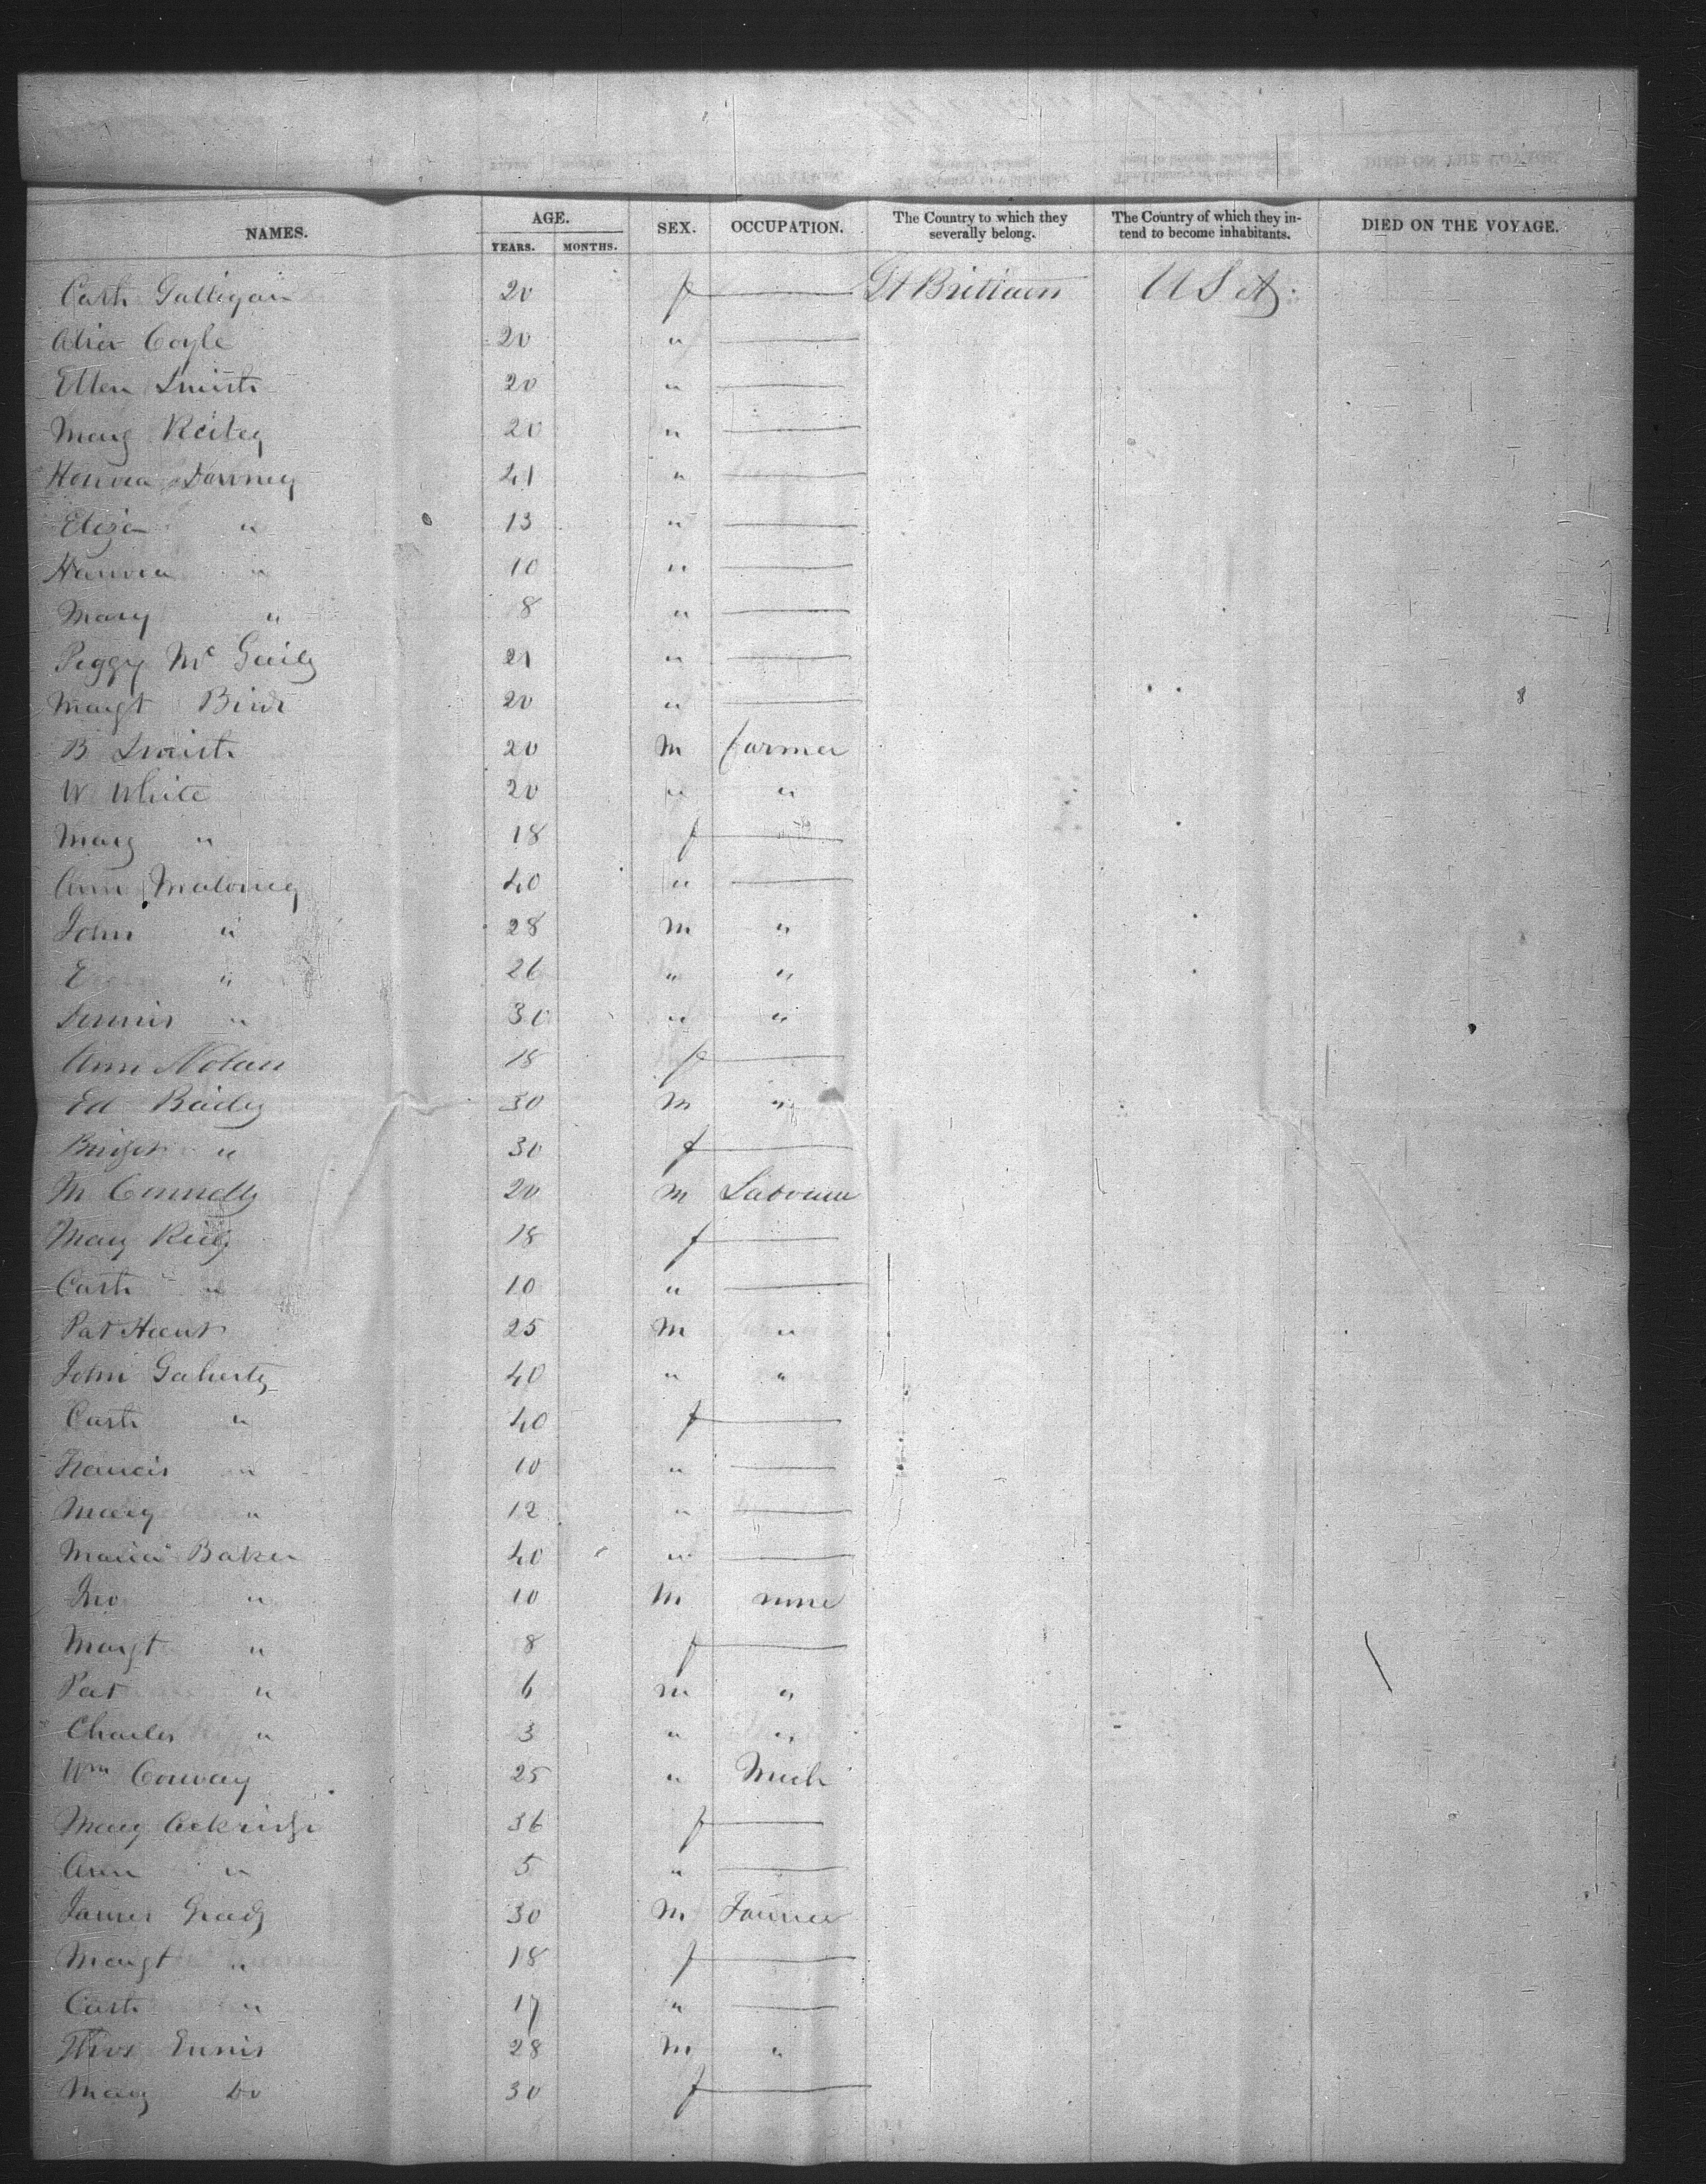 NAMES. AGE. YEARS. MONTHS. SEX. OCCUPATION. The Country to which they severally belong. The Country of which they intend to become inhabitants. DIED ON THE VOYAGE.
Cath Galligan 20 f — Gt Britiaen U S A.
Alice Coyle 20 " —
Ellen Smith 20 " —
Mary Reiley 20 " —
Honora Downey 41 " —
Eliza " 13 " —
Hanora " 10 " —
Mary " 8 " —
Peggy Mc 21 " —
Margt Bird 20 " —
B Smith 20 M farmer
W White 20 " "
Mary " 18 f —
Ann Maloney 40 " —
John " 28 M "
E " 26 " "
Dennis " 30 " "
Ann Nolan 18 f —
Ed Bailey 30 M "
Bridget " 30 f —
M Connolly 20 M Labourer
Mary Reily 18 f —
Cath " 10 " —
Pat Hunt 25 M "
John Gaherty 40 " "
Cath " 40 f —
Francis " 10 " —
Mary " 12 " —
Maria Baker 40 " —
Jno " 10 M none
Margt " 8 f —
Pat " 6 M "
Charles " 3 " "
Wm Conway 25 " Mech
Mary 36 f —
Ann " 5 " —
James Grady 30 M Farmer
Margt " 18 f —
Cath " 17 " —
Thos Ennis 28 M "
Mary Do 30 f —